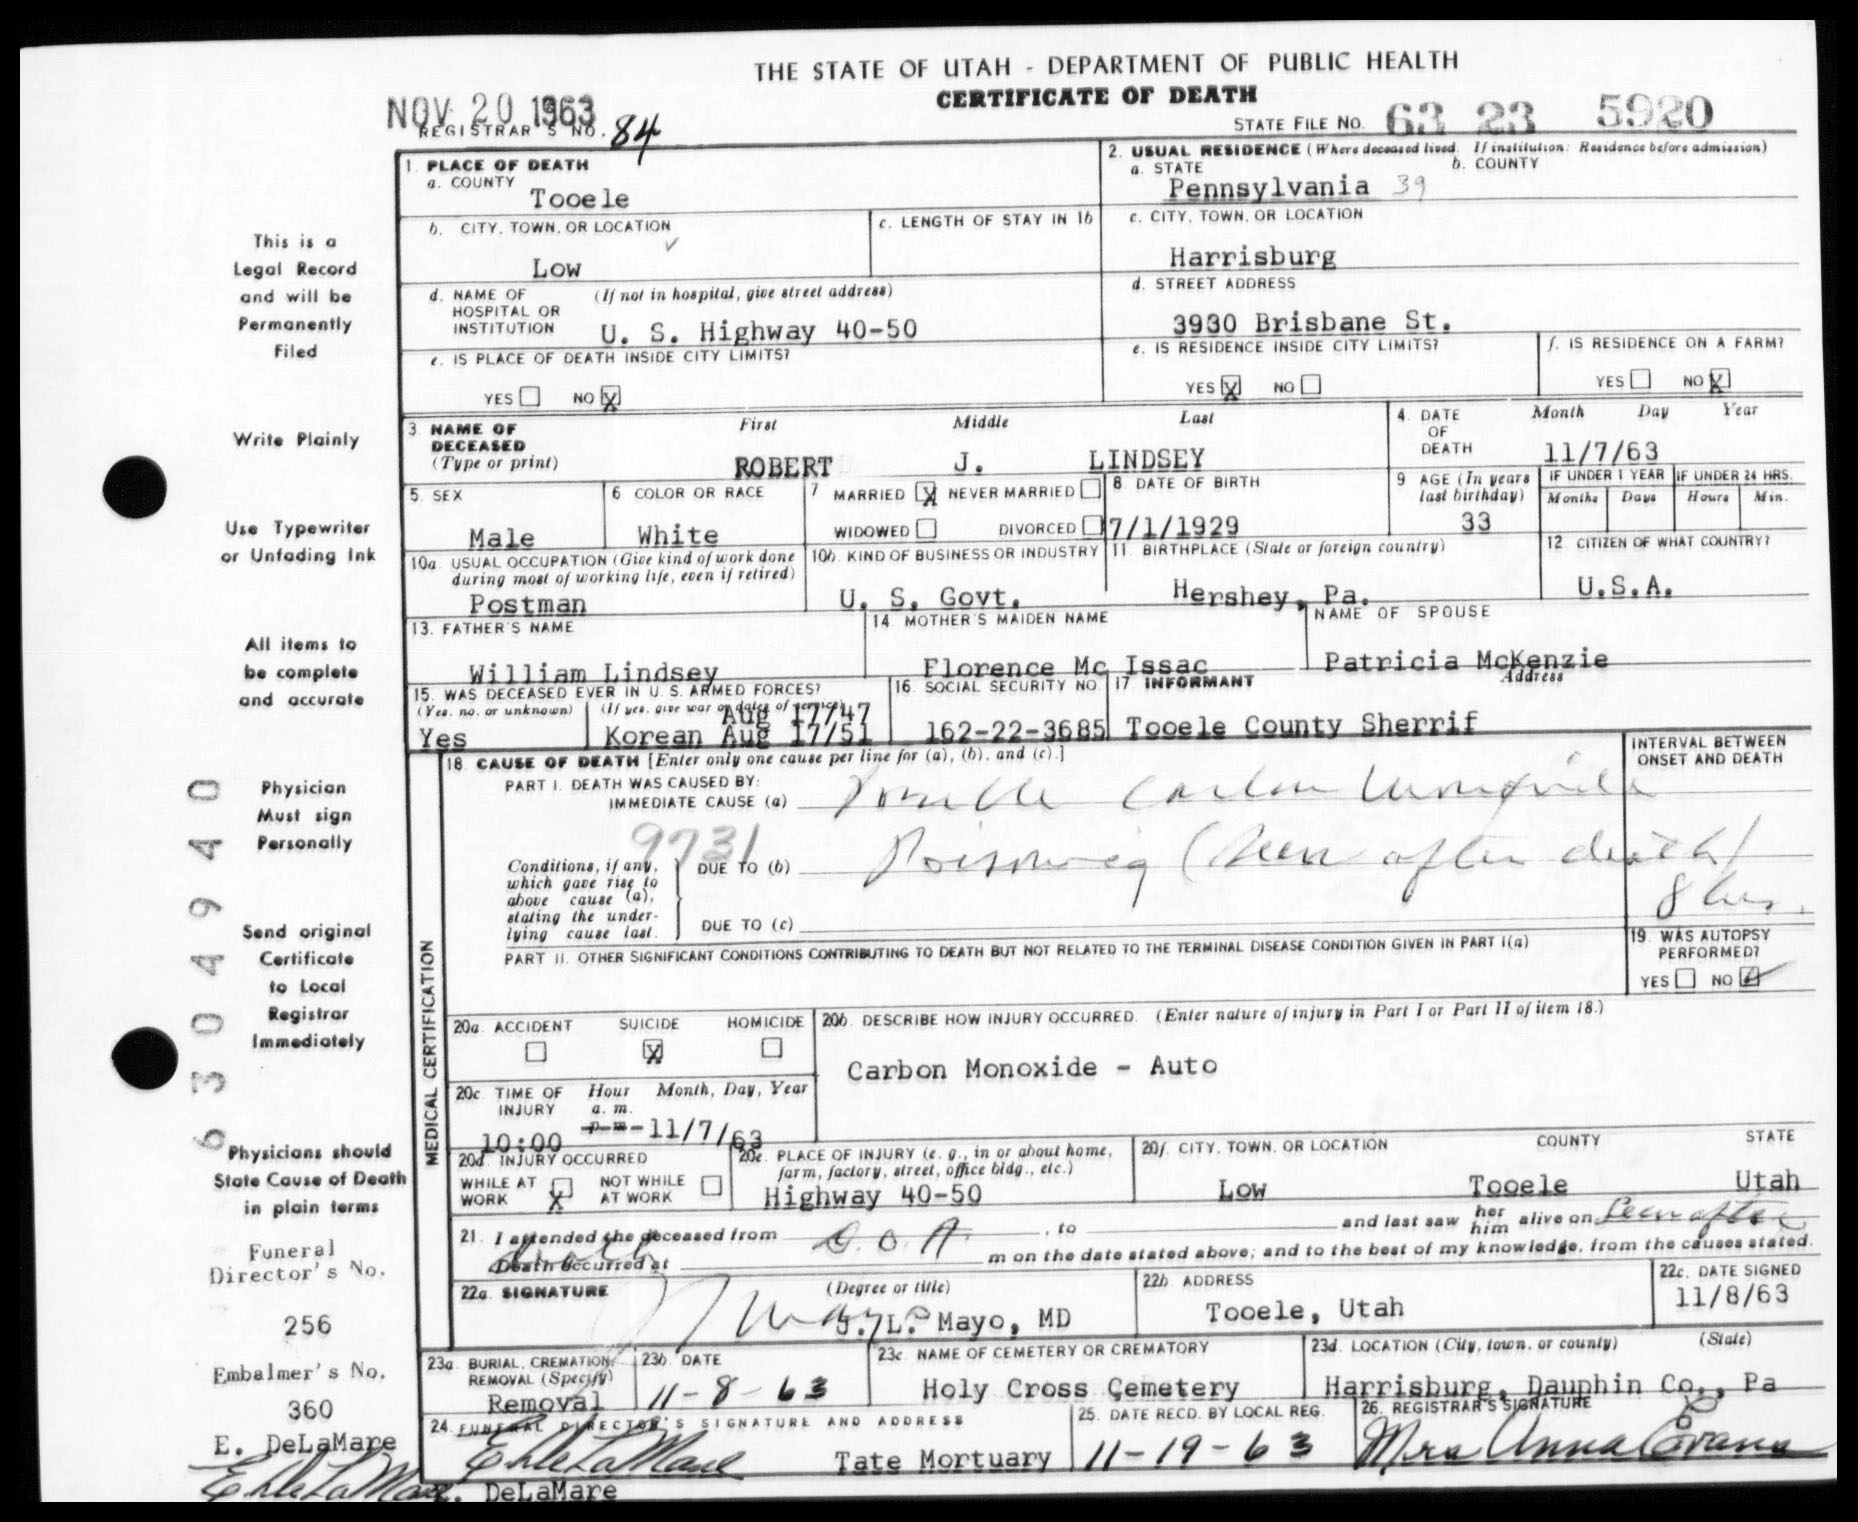 THE STATE OF UTAH - DEPARTMENT OF PUBLIC HEALTH
CERTIFICATE OF DEATH
NOV 20 1963
REGISTRAR'S NO. 84
STATE FILE NO. 63 23 5920
This is a
Legal Record
and will be
Permanently
Filed
Write Plainly
Use Typewriter
or Unfading Ink
All items to
be complete
and accurate
Physician
Must sign
Personally
Send original
Certificate
to Local
Registrar
Immediately
Physicians should
State Cause of Death
in plain terms
Funeral
Director's No.
256
Embalmer's No.
360
E. DeLaMare
6304940
1. PLACE OF DEATH
a. COUNTY
Tooele
b. CITY, TOWN, OR LOCATION
Low
c. LENGTH OF STAY IN 1b
d. NAME OF HOSPITAL OR INSTITUTION (If not in hospital, give street address)
U. S. Highway 40-50
e. IS PLACE OF DEATH INSIDE CITY LIMITS?
YES NO X
2. USUAL RESIDENCE (Where deceased lived. If institution: Residence before admission)
a. STATE
Pennsylvania 39
b. COUNTY
c. CITY, TOWN, OR LOCATION
Harrisburg
d. STREET ADDRESS
3930 Brisbane St.
e. IS RESIDENCE INSIDE CITY LIMITS?
YES X NO
f. IS RESIDENCE ON A FARM?
YES NO X
3. NAME OF DECEASED (Type or print)
First Middle Last
ROBERT J. LINDSEY
4. DATE OF DEATH Month Day Year
11/7/63
5. SEX
Male
6 COLOR OR RACE
White
7 MARRIED X NEVER MARRIED
WIDOWED DIVORCED
8 DATE OF BIRTH
7/1/1929
9 AGE (In years last birthday)
33
IF UNDER 1 YEAR
Months Days
IF UNDER 24 HRS.
Hours Min.
10a. USUAL OCCUPATION (Give kind of work done during most of working life, even if retired)
Postman
10b. KIND OF BUSINESS OR INDUSTRY
U. S. Govt.
11. BIRTHPLACE (State or foreign country)
Hershey, Pa.
12 CITIZEN OF WHAT COUNTRY?
U.S.A.
13. FATHER'S NAME
William Lindsey
14 MOTHER'S MAIDEN NAME
Florence Mc Issac
NAME OF SPOUSE
Patricia McKenzie
15. WAS DECEASED EVER IN U. S. ARMED FORCES?
(Yes, no, or unknown) (If yes, give war or dates of service)
Yes
Aug 17/47
Korean Aug 17/51
16. SOCIAL SECURITY NO.
162-22-3685
17 INFORMANT Address
Tooele County Sherrif
MEDICAL CERTIFICATION
18. CAUSE OF DEATH [Enter only one cause per line for (a), (b), and (c).]
INTERVAL BETWEEN ONSET AND DEATH
PART I. DEATH WAS CAUSED BY:
IMMEDIATE CAUSE (a) Possible Carbon Monoxide
9731
Conditions, if any, which gave rise to above cause (a), stating the underlying cause last.
DUE TO (b) Poisoning (Seen after death)
8 hrs.
DUE TO (c)
PART II. OTHER SIGNIFICANT CONDITIONS CONTRIBUTING TO DEATH BUT NOT RELATED TO THE TERMINAL DISEASE CONDITION GIVEN IN PART I(a)
19. WAS AUTOPSY PERFORMED?
YES NO ✓
20a. ACCIDENT SUICIDE HOMICIDE
X
20b. DESCRIBE HOW INJURY OCCURRED. (Enter nature of injury in Part I or Part II of item 18.)
Carbon Monoxide - Auto
20c. TIME OF INJURY Hour Month, Day, Year
a. m.
p. m.
10:00 11/7/63
20d. INJURY OCCURRED
WHILE AT WORK X NOT WHILE AT WORK
20e. PLACE OF INJURY (e. g., in or about home, farm, factory, street, office bldg., etc.)
Highway 40-50
20f. CITY, TOWN, OR LOCATION COUNTY STATE
Low Tooele Utah
21. I attended the deceased from D.O.A. , to and last saw her him alive on Seen after
death
Death occurred at m on the date stated above; and to the best of my knowledge, from the causes stated.
22a. SIGNATURE (Degree or title)
J. L. Mayo, MD
22b. ADDRESS
Tooele, Utah
22c. DATE SIGNED
11/8/63
23a. BURIAL, CREMATION, REMOVAL (Specify)
Removal
23b. DATE
11-8-63
23c. NAME OF CEMETERY OR CREMATORY
Holy Cross Cemetery
23d. LOCATION (City, town, or county) (State)
Harrisburg, Dauphin Co., Pa
24. FUNERAL DIRECTOR'S SIGNATURE AND ADDRESS
E. DeLaMare Tate Mortuary
DeLaMare
25. DATE RECD. BY LOCAL REG.
11-19-63
26. REGISTRAR'S SIGNATURE
Mrs Anna E Evans